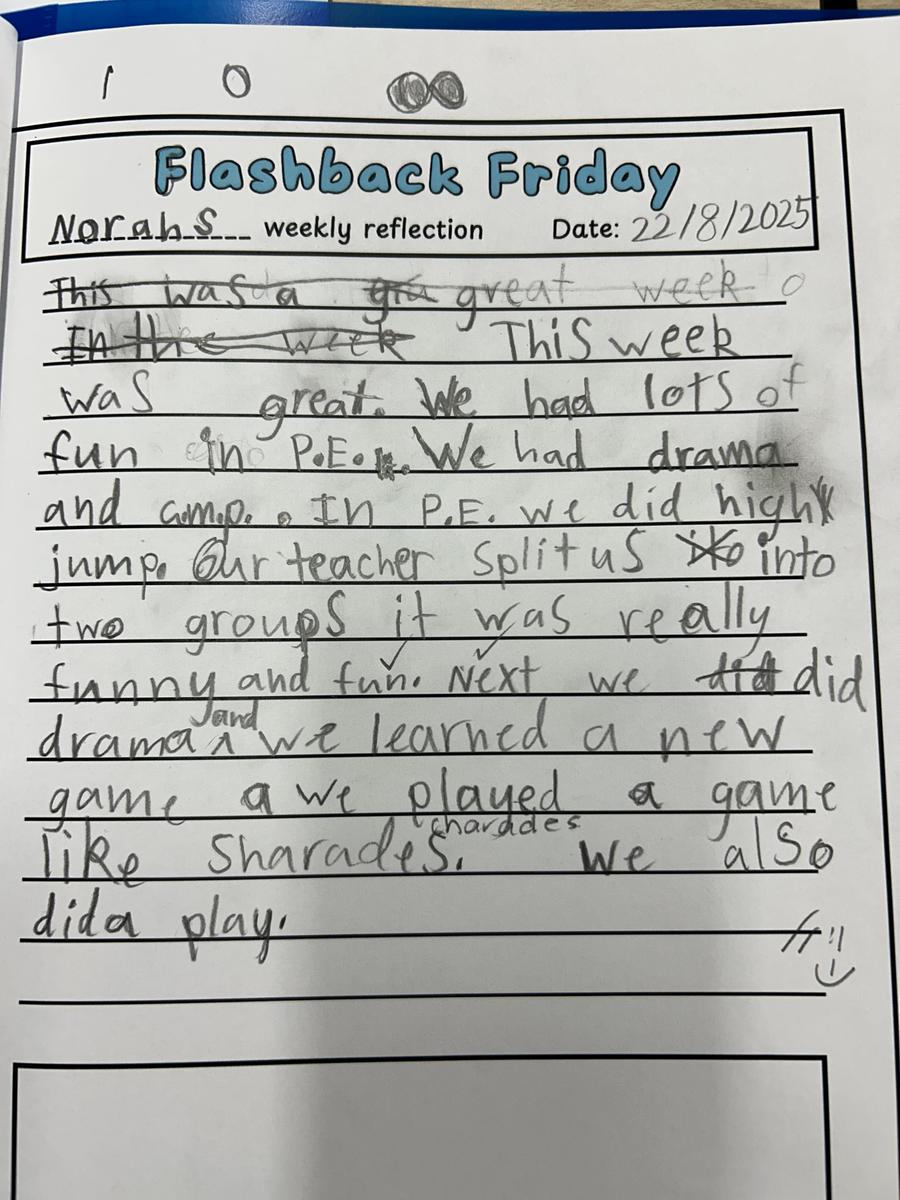 1 0
Flashback Friday
Norahs weekly reflection Date: 22/8/2025
This was a gra great week
In the week This week
was great. We had lots of
fun in P.E. We had drama
and a.m.p. . In P.E. we did high
jump. Our teacher split us ito into
two groups it was really
funny and fun. Next we did did
drama ^ and we learned a new
game a we played a game
like Sharades. charades We also
did a play.